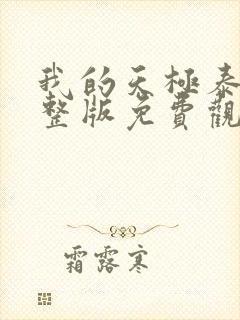 我的天極泰
整版免費觀
霜露寒